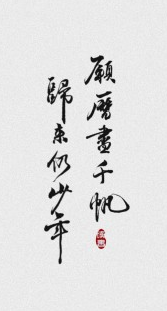 願曆盡千帆
歸來仍少年